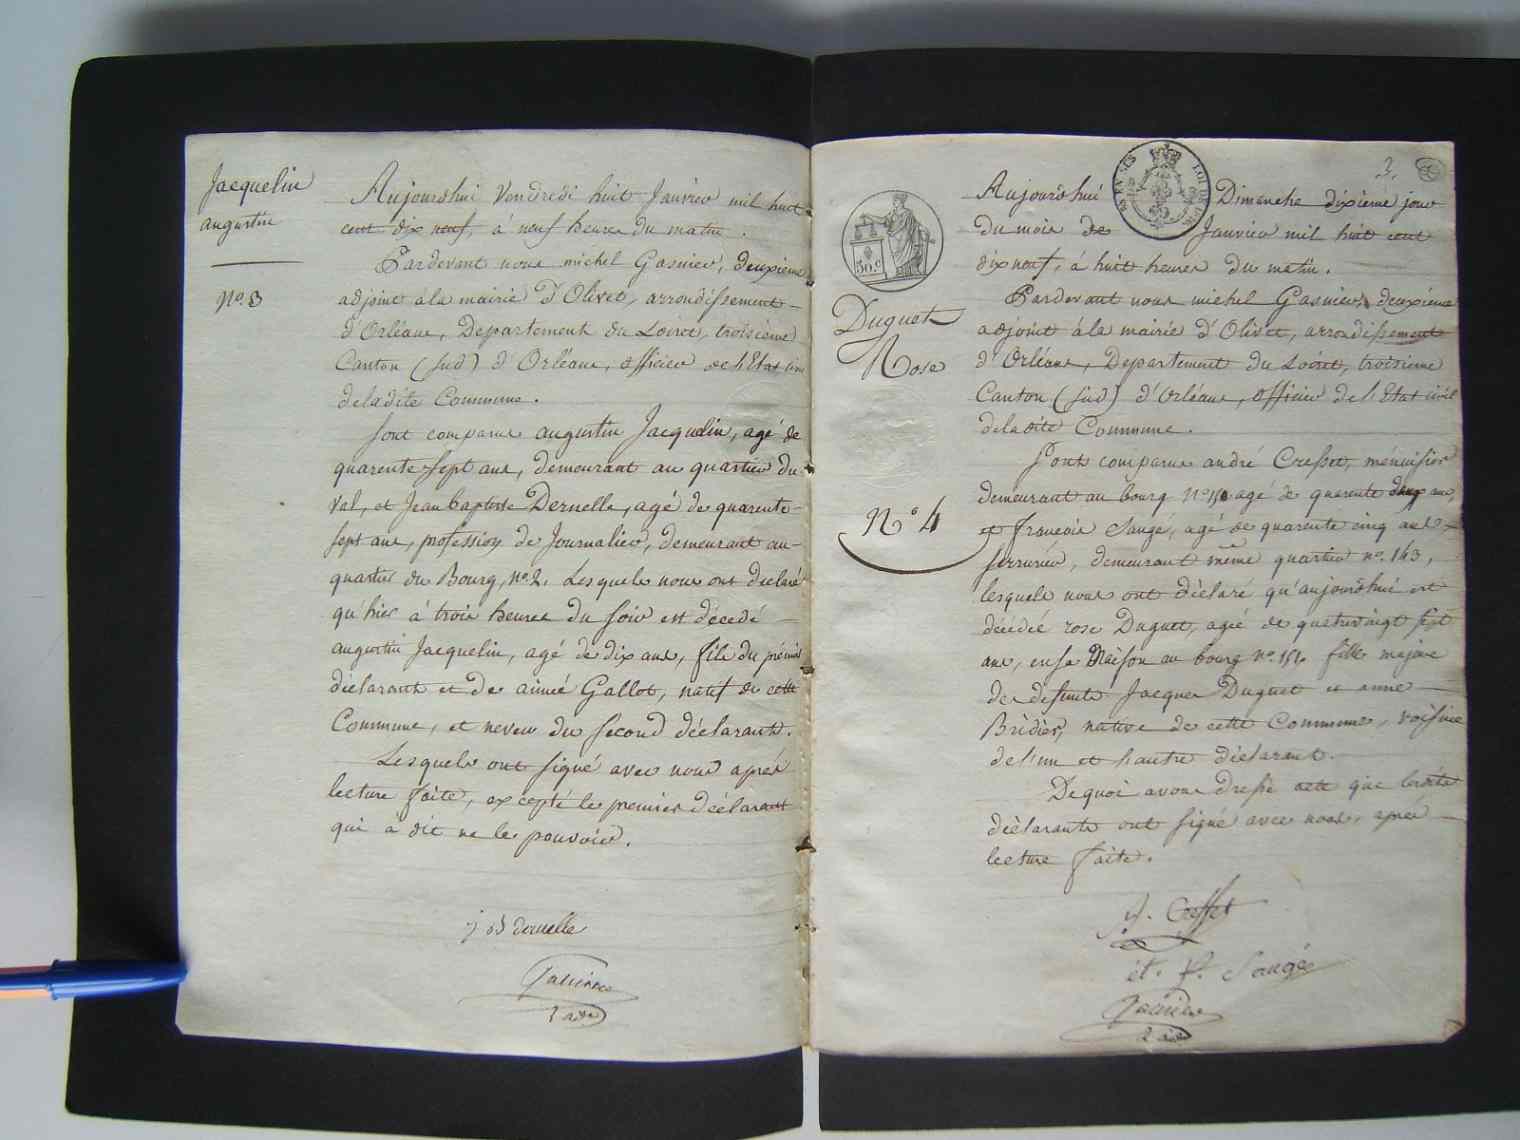 Jacquelin
augustin
No. 3
Aujourdhui Vendredi huit Janvier mil huit
cent dix neuf, à neuf heures du matin.
Pardevant nous michel Gasnier, deuxième
adjoint à la mairie D'Olivet, arrondissement
d'Orléans, Departement du Loiret, troisième
Canton (sud) d'Orléans, officier de l'Etat civil
de ladite Commune.
Sont comparus augustin Jacquelin, agé de
quarente-sept ans, demeurant au quartier du
val, et Jean baptiste Dernelle, agé de quarente-
sept ans, profession de Journalier, demeurant au
quartier du Bourg, no. 2, Lesquels nous ont déclaré
qu'hier à trois heures du soir est décédé
augustin Jacquelin, agé de dix ans, fils du prémier
déclarant et de aimée Gallot, natif de cette
Commune, et neveu du second déclarant.
Lesquels ont signé avec nous après
lecture faite, excepté le premier déclarant
qui a dit ne le pouvoir.
j B dernelle
Gasnier
2 adj
3.
Aujourdhui Dimanche dixième jour
du mois de Janvier mil huit cent
dix neuf, à huit heures du matin.
50 c
Duguet
Rose
N° 4
Pardevant nous michel Gasnier deuxième
adjoint à la mairie d'Olivet, arrondissement
d'Orléans, Departement du Loiret, troisième
Canton (sud) d'Orléans, officier de l'Etat civil
de ladite Commune.
Sont comparus andré Cresset, ménuisier
demeurant au bourg No. 150 agé de quarente deux ans,
et françois Saugé, agé de quarente cinq ans
serrurier, demeurant même quartier no. 143,
lesquels nous ont déclaré qu'aujourdhui est
décédée rose Duguet, agée de quatrevingt sept
ans, en sa Maison au bourg no. 151. fille majeure
de defunts Jacques Duguet et anne
Bridier, native de cette Commune, voisine
de l'un et l'autre déclarant.
De quoi avons dressé acte que lesdits
déclarants ont signé avec nous, après
lecture faite.
A. Cresset
et. f. Saugé
Gasnier
2 adj